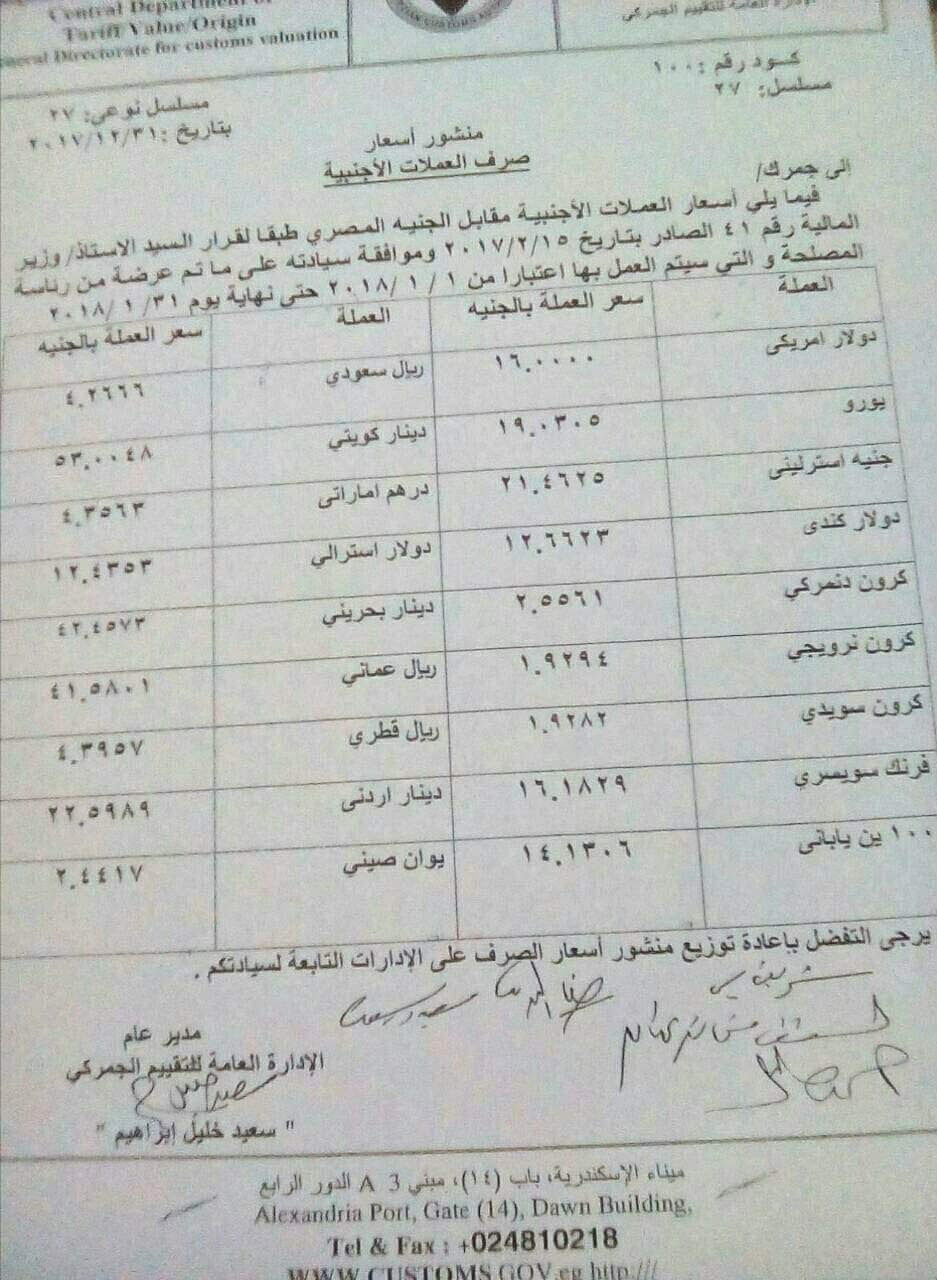 Central Department of
Tariff Value/Origin
General Directorate for customs valuation
الإدارة العامة للتقييم الجمركي
كود رقم :١٠٠
مسلسل: ٢٧
مسلسل نوعي: ٢٧
بتاريخ :٢٠١٧/١٢/٣١
منشور أسعار
صرف العملات الأجنبية
إلى جمرك/
فيما يلي أسعار العملات الأجنبية مقابل الجنيه المصري طبقا لقرار السيد الاستاذ/ وزير
المالية رقم ٤١ الصادر بتاريخ ٢٠١٧/٢/١٥ وموافقة سيادته على ما تم عرضة من رئاسة
المصلحة و التي سيتم العمل بها اعتبارا من ١ / ١ /٢٠١٨ حتى نهاية يوم ٣١/ ١ /٢٠١٨
العملة سعر العملة بالجنيه العملة سعر العملة بالجنيه
دولار امريكى ١٦.٠٠٠٠ ريال سعودي ٤.٢٦٦٦
يورو ١٩.٠٣٠٥ دينار كويتي ٥٣.٠٠٤٨
جنيه استرلينى ٢١.٤٦٢٥ درهم اماراتى ٤.٣٥٦٣
دولار كندى ١٢.٦٦٢٣ دولار استرالي ١٢.٤٣٥٣
كرون دنمركي ٢.٥٥٦١ دينار بحريني ٤٢.٤٥٧٣
كرون نرويجي ١.٩٢٩٤ ريال عماني ٤١.٥٨٠١
كرون سويدي ١.٩٢٨٢ ريال قطري ٤.٣٩٥٧
فرنك سويسري ١٦.١٨٢٩ دينار اردنى ٢٢.٥٩٨٩
١٠٠ ين يابانى ١٤.١٣٠٦ يوان صيني ٢.٤٤١٧
يرجى التفضل بإعادة توزيع منشور أسعار الصرف على الإدارات التابعة لسيادتكم .
مدير عام
الإدارة العامة للتقييم الجمركي
" سعيد خليل إبراهيم "
ميناء الإسكندرية، باب (١٤)، مبني 3 A الدور الرابع
Alexandria Port, Gate (14), Dawn Building,
Tel & Fax : +024810218
WWW.CUSTOMS.GOV.eg http:///